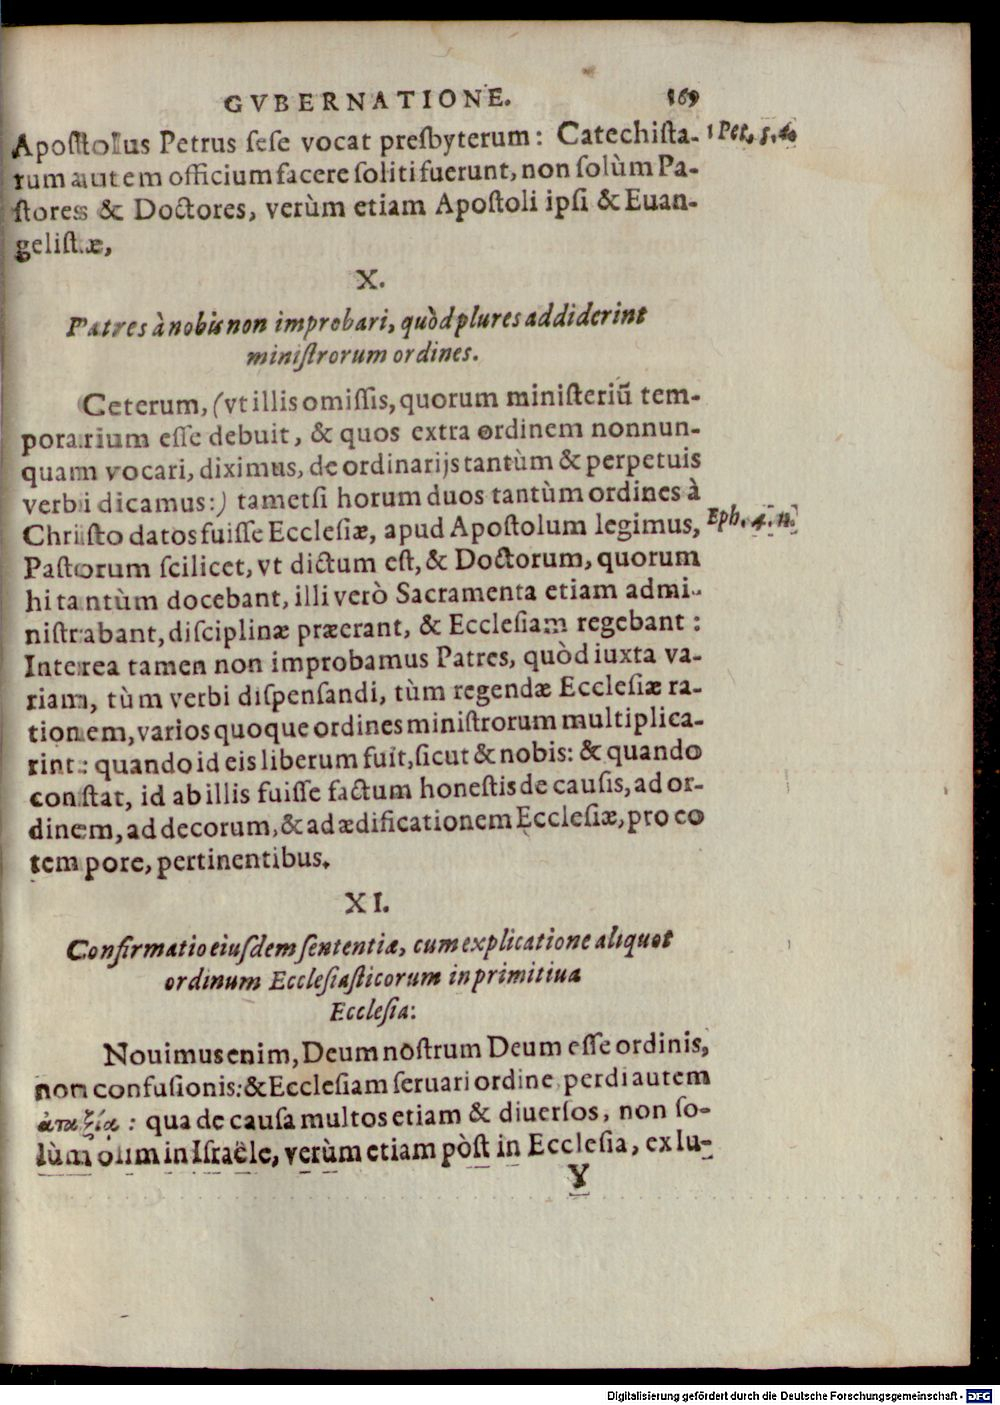 GVBERNATIONE. 169
Apostolus Petrus sese vocat presbyterum: Catechista- 1 Pet. 5. 1.
rum autem officium facere soliti fuerunt, non solùm Pa-
stores & Doctores, verùm etiam Apostoli ipsi & Euan-
gelistæ,
X.
Patres à nobis non improbari, quòd plures addiderint
ministrorum ordines.
Ceterum, (vt illis omissis, quorum ministeriũ tem-
porarium esse debuit, & quos extra ordinem nonnun-
quam vocari, diximus, de ordinarijs tantùm & perpetuis
verbi dicamus:) tametsi horum duos tantùm ordines à
Christo datos fuisse Ecclesiæ, apud Apostolum legimus, Eph. 4. 11.
Pastorum scilicet, vt dictum est, & Doctorum, quorum
hi tantùm docebant, illi verò Sacramenta etiam admi-
nistrabant, disciplinæ præerant, & Ecclesiam regebant:
Interea tamen non improbamus Patres, quòd iuxta va-
riam, tùm verbi dispensandi, tùm regendæ Ecclesiæ ra-
tionem, varios quoque ordines ministrorum multiplica-
rint: quando id eis liberum fuit, sicut & nobis: & quando
constat, id ab illis fuisse factum honestis de causis, ad or-
dinem, ad decorum, & ad ædificationem Ecclesiæ, pro eo
tempore, pertinentibus.
XI.
Confirmatio eiusdem sententiæ, cum explicatione aliquot
ordinum Ecclesiasticorum in primitiua
Ecclesia:
Nouimus enim, Deum nostrum Deum esse ordinis,
non confusionis: & Ecclesiam seruari ordine perdi autem
ἀταξία: qua de causa multos etiam & diuersos, non so-
lùm olim in Israële, verùm etiam pòst in Ecclesia, ex Iu-
Y
Digitalisierung gefördert durch die Deutsche Forschungsgemeinschaft - DFG